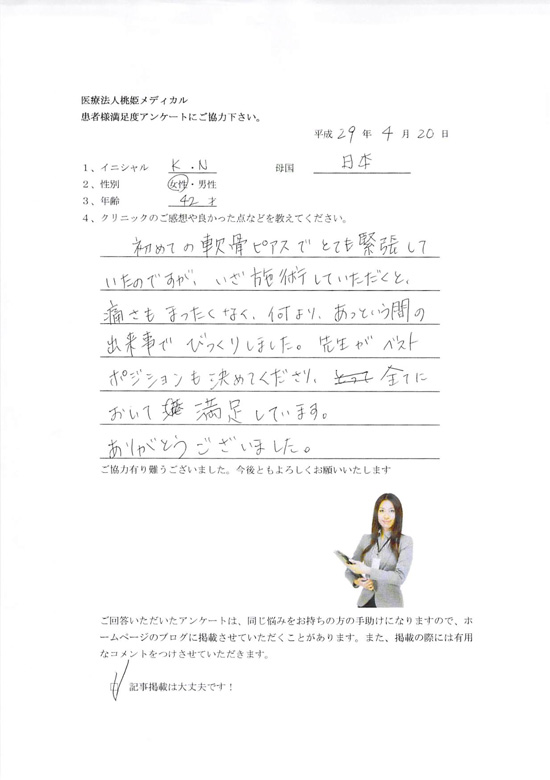 医療法人桃姫メディカル
患者様満足度アンケートにご協力下さい。
平成 29 年 4 月 20 日
1、イニシャル K・N 母国 日本
2、性別 女性・男性
3、年齢 42才
4、クリニックのご感想や良かった点などを教えてください。
初めての軟骨ピアスでとても緊張して
いたのですが、いざ施術していただくと、
痛さもまったくなく、何より、あっという間の
出来事でびっくりしました。先生がベスト
ポジションも決めてくださり、全てに
おいて満足しています。
ありがとうございました。
ご協力有り難うございました。今後ともよろしくお願いいたします
ご回答いただいたアンケートは、同じ悩みをお持ちの方の手助けになりますので、ホ
ームページのブログに掲載させていただくことがあります。また、掲載の際には有用
なコメントをつけさせていただきます。
記事掲載は大丈夫です！